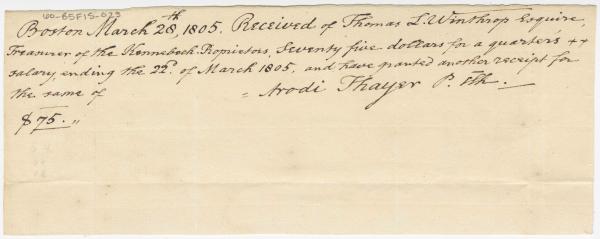 UO-85F15-023
Boston March 28,th 1805. Received of Thomas L. Winthrop Esquire,
Treasurer of the Kennebeck Proprietors, Seventy five dollars for a quarter's ++
salary, ending the 22d. of March 1805, and have granted another receipt for
the same of
" Arodi Thayer P. Clk.
$75. "